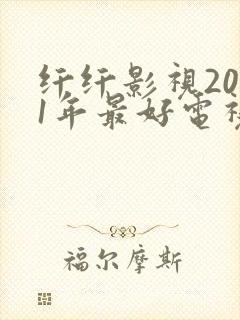 纤纤影視20
1年最好電視
福尔摩斯